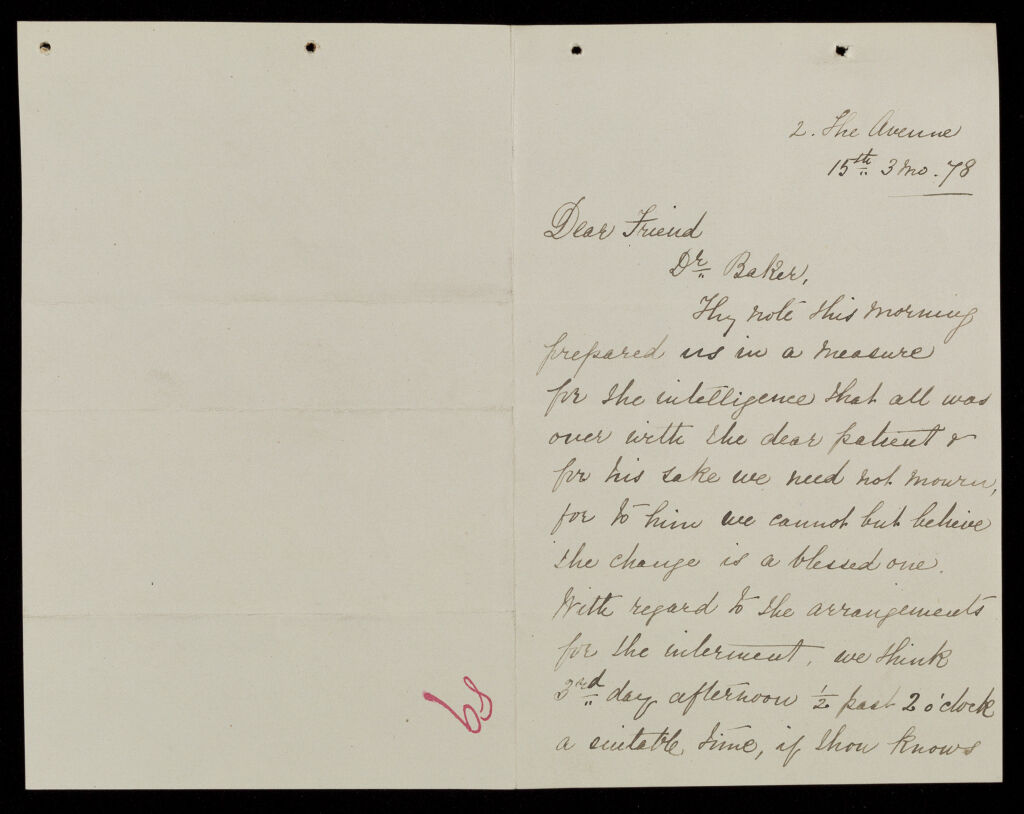 2. The Avenue
15th 3 Mo. 78
Dear Friend
Dr Baker,
Thy note this morning
prepared us in a measure
for the intelligence that all was
over with the dear patient &
for his sake we need not mourn,
for to him we cannot but believe
the change is a blessed one.
With regard to the arrangements
for the interment, we think
3rd day afternoon ½ past 2 o'clock
a suitable time, if thou knows
69